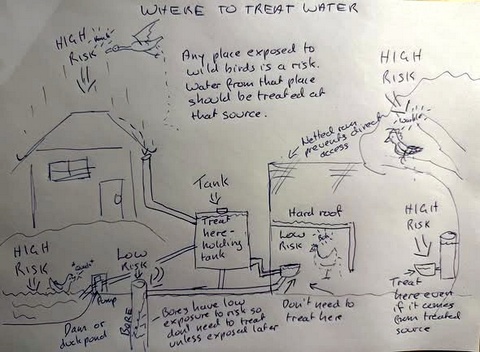 WHERE TO TREAT WATER
HIGH
RISK
Honk!
Any place exposed to
wild birds is a risk.
Water from that place
should be treated at
that source.
HIGH
RISK
Netted run
prevents direct
access
Tank
Treat
here -
holding
tank
Hard roof
LOW
RISK
HIGH
RISK
HIGH
RISK
"Quack"
LOW
RISK
Pump
Dam or
duck pond
BORE
Bores have low
exposure to risk so
dont need to treat
unless exposed later
Don't need to
treat here
Treat
here even
if it comes
from treated
source